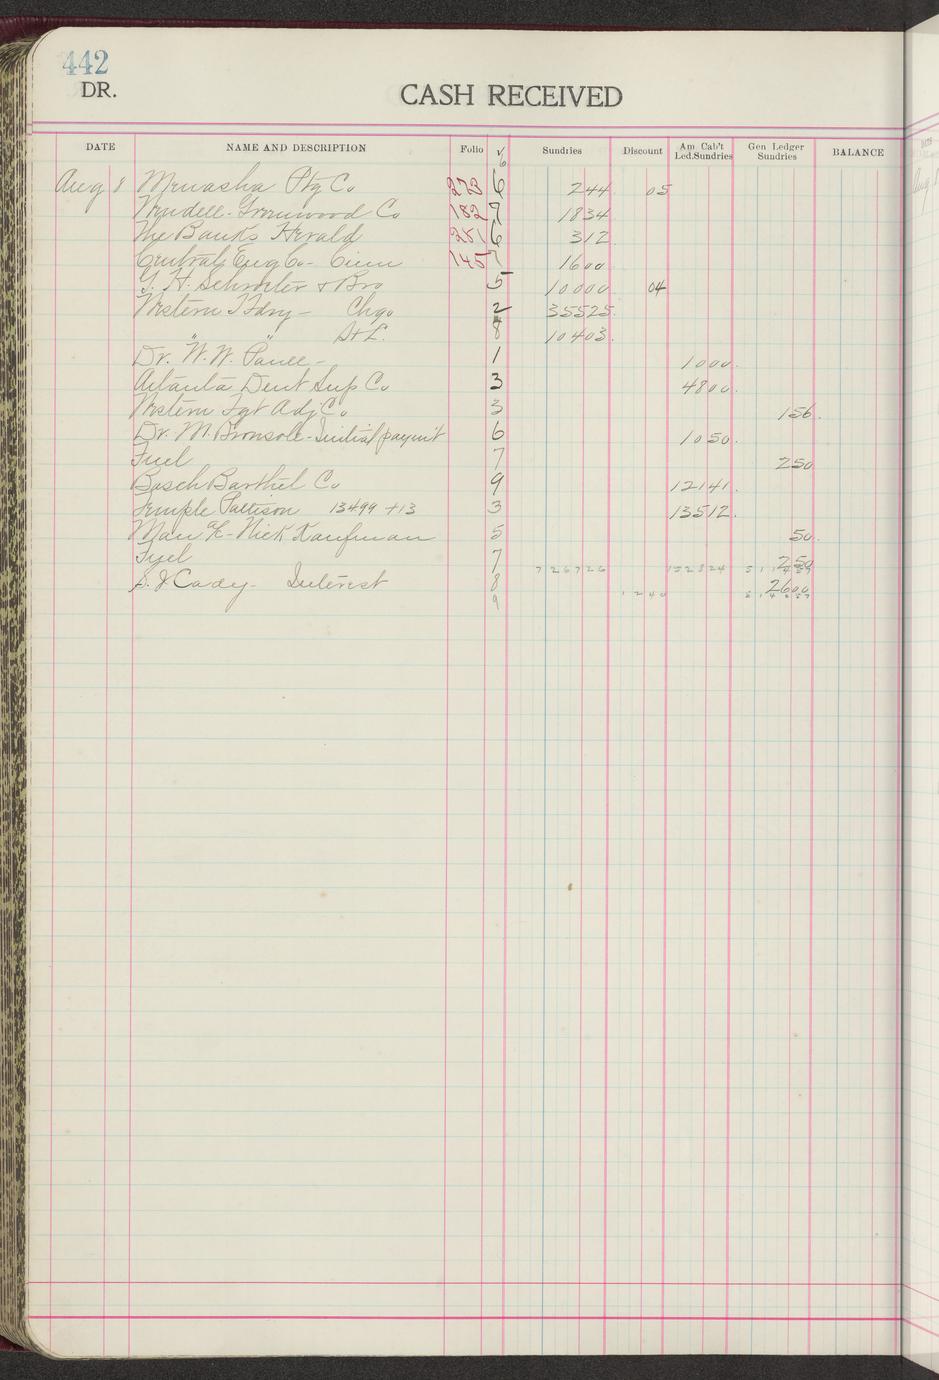 442
DR.
CASH RECEIVED
DATE NAME AND DESCRIPTION Folio √ Sundries Discount Am Cab't Led.Sundries Gen Ledger Sundries BALANCE
6
Aug 8 Menasha Ptg Co 273 6 244 05
Wendell-Greenwood Co 182 7 1834
The Banks Herald 251 6 312
Central Eng Co - Cinn 145 7 1600
G. H. Schroeter & Bro 5 10000 04
Western Fdry - Chgo 2 35525
" " St L. 8 10403
Dr. W. W. 1 1000
Atlanta Dent Sup Co 3 4800
Western Fgt Adj Co 3 156
Dr. M. Bronsole - Initial paymt 6 1050
Fuel 7 250
Bosch Barthel Co 9 12141
Temple Pattison 13499 + 13 3 13512
Man a/c - Nick Kaufman 5 50
Fuel 7 250
726726 152824
S. J Cady - Interest 8 2600
9 1240